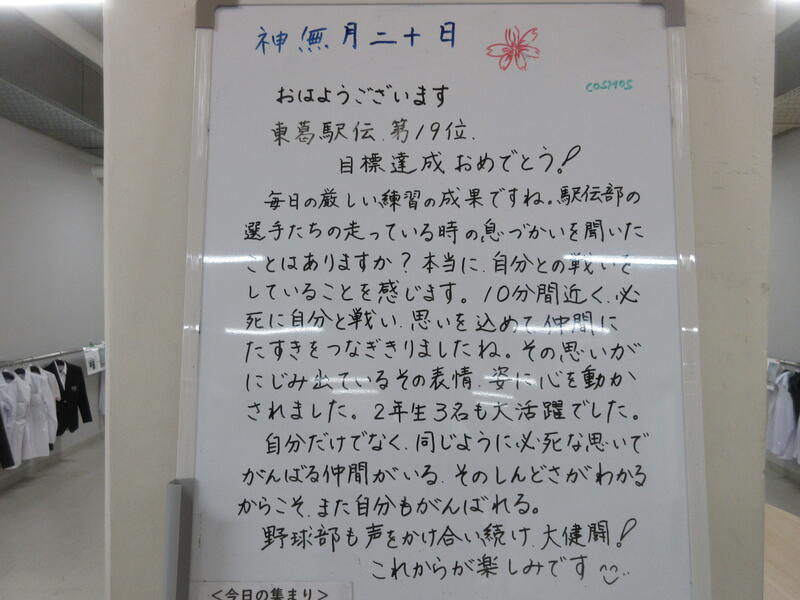 神無月二十日
cosmos
おはようございます
東葛駅伝、第19位、
目標達成おめでとう!
毎日の厳しい練習の成果ですね。駅伝部の
選手たちの走っている時の息づかいを聞いた
ことはありますか?本当に、自分との戦いを
していることを感じます。10分間近く、必
死に自分と戦い、思いを込めて仲間に
たすきをつなぎきりましたね。その思いが
にじみ出ているその表情、姿に心を動か
されました。2年生3名も大活躍でした。
自分だけでなく、同じように必死な思いで
がんばる仲間がいる、そのしんどさがわかる
からこそ、また自分もがんばれる。
野球部も声をかけ合い続け、大健闘!
これからが楽しみです
<今日の集まり>